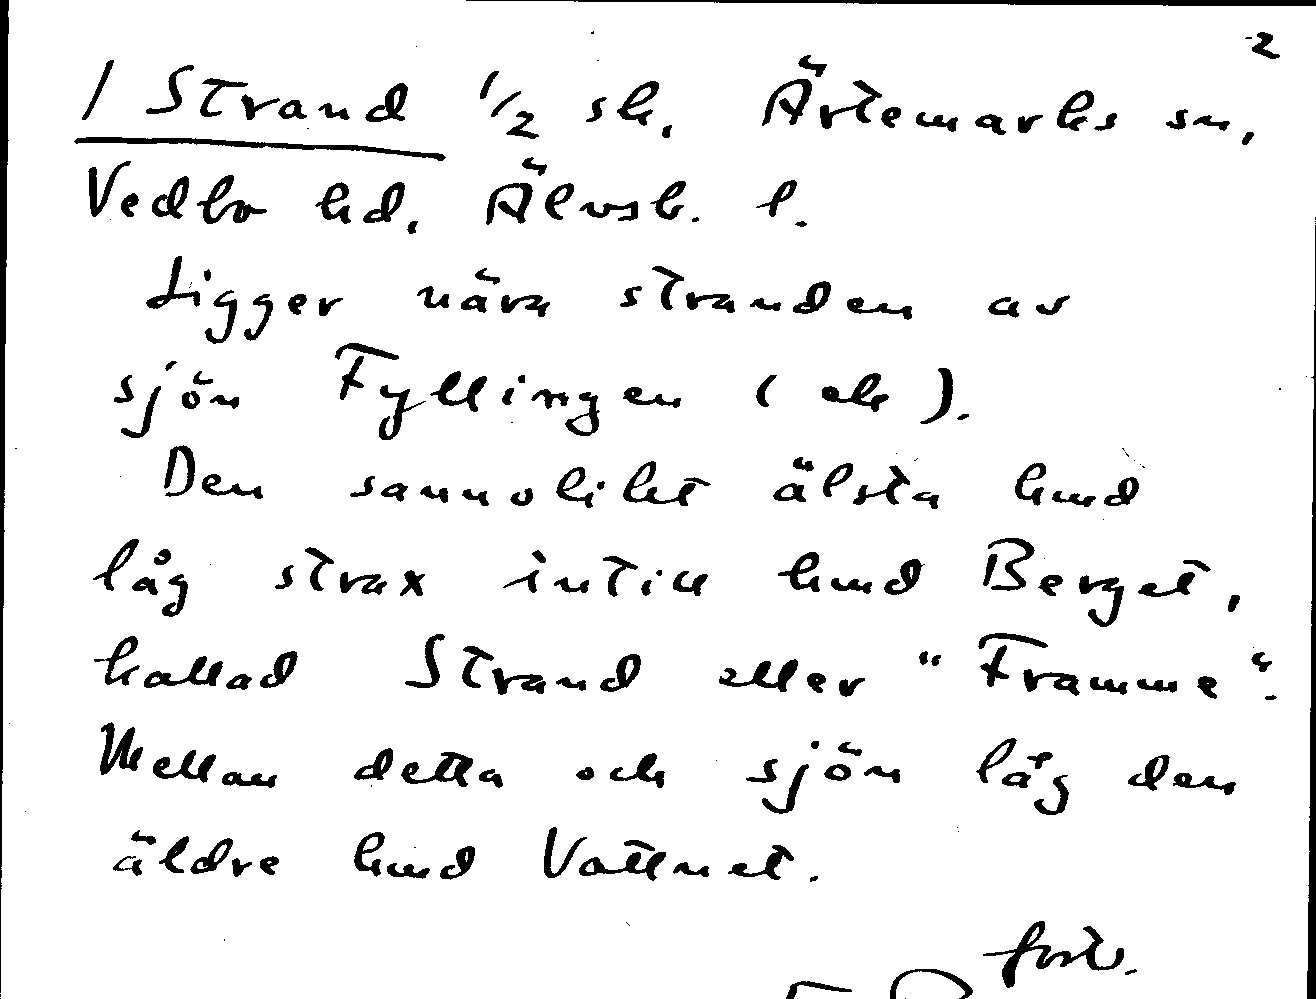 2
1 Strand 1/2 sk. Ärtemarks sn,
Vedbo hd, Älvsb. l.
Ligger nära stranden av
sjön Fyllingen (ek).
Den sannolikt älsta hmd
låg strax intill hmd Berget,
kallad Strand eller "Framme".
Mellan detta och sjön låg den
äldre hmd Vattnet.
forts.